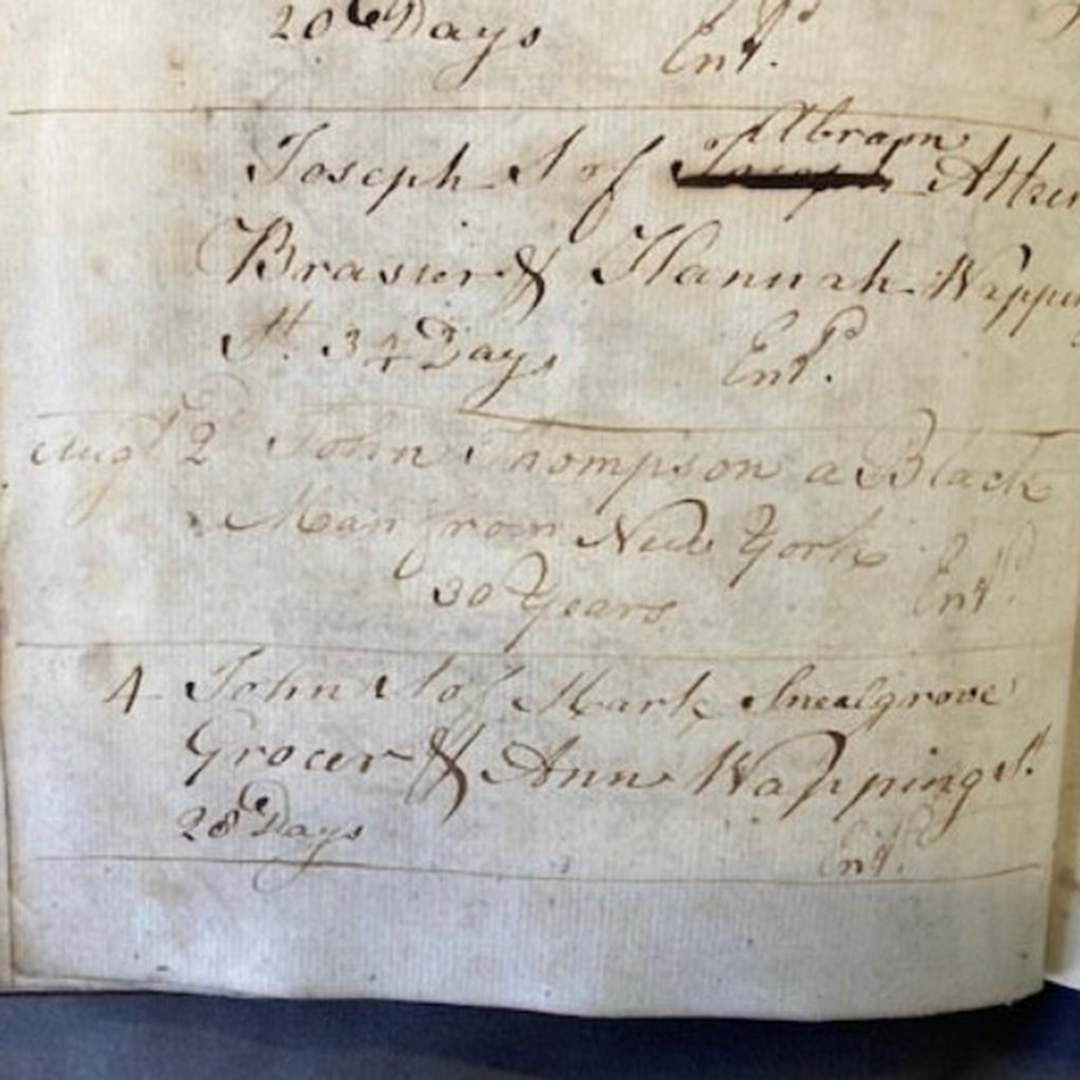 20 Days
Entd.
Joseph S of of Abram
Brasier & Hannah Wapping
St. 34 Days Entd.
Augt 2 John Thompson a Black
Man from New York
30 Years Entd.
4 John S of Mark Snealgrove
Grocer & Ann Wapping St.
28 Days
Entd.